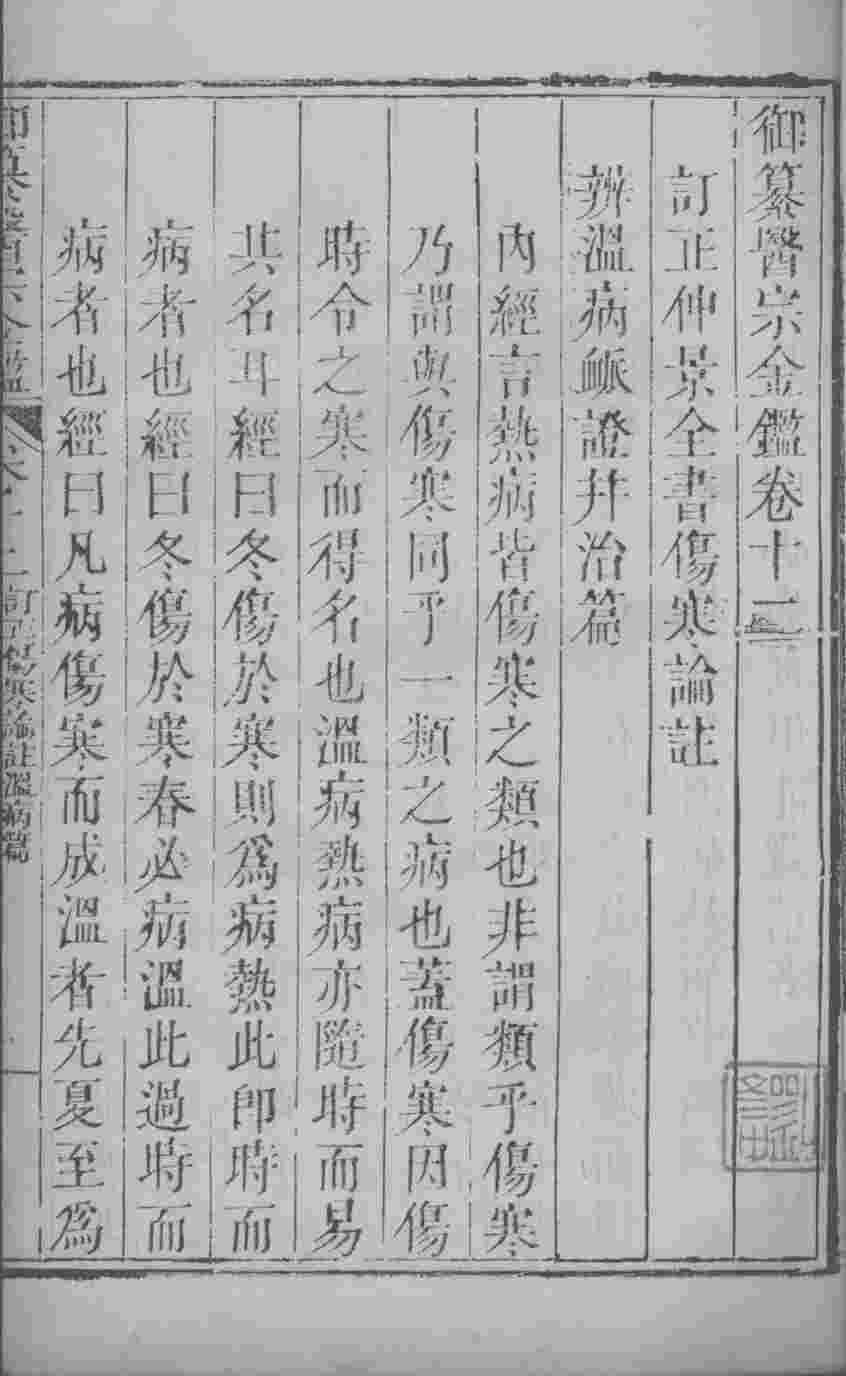 御纂醫宗金鑑卷十二
訂正仲景全書傷寒論註
辨溫病脈證并治篇
內經言熱病皆傷寒之類也非謂類乎傷寒
乃謂與傷寒同乎一類之病也蓋傷寒因傷
時令之寒而得名也溫病熱病亦隨時而易
其名耳經曰冬傷於寒則爲病熱此卽時而
病者也經曰冬傷於寒春必病溫此過時而
病者也經曰凡病傷寒而成溫者先夏至爲
御纂醫宗金鑑 卷十二 訂正傷寒論註溫病篇